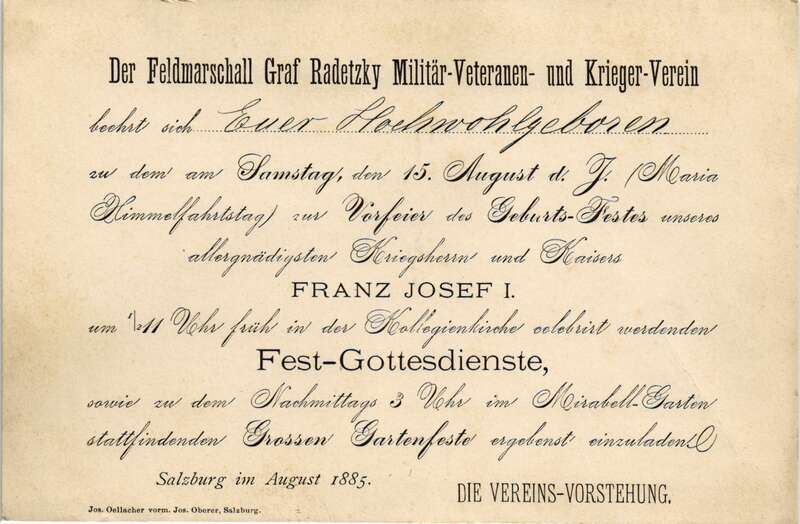 Der Feldmarschall Graf Radetzky Militär-Veteranen- und Krieger-Verein
beehrt sich Euer Hochwohlgeboren
zu dem am Samstag, den 15. August d. J. (Maria
Himmelfahrtstag) zur Vorfeier des Geburts-Festes unseres
allergnädigsten Kriegsherrn und Kaisers
FRANZ JOSEF I.
um ½11 Uhr früh in der Kollegienkirche celebrirt werdenden
Fest-Gottesdienste,
sowie zu dem Nachmittags 3 Uhr im Mirabell-Garten
stattfindenden Grossen Gartenfeste ergebenst einzuladen.
Salzburg im August 1885.
DIE VEREINS-VORSTEHUNG.
Jos. Oellacher vorm. Jos. Oberer, Salzburg.